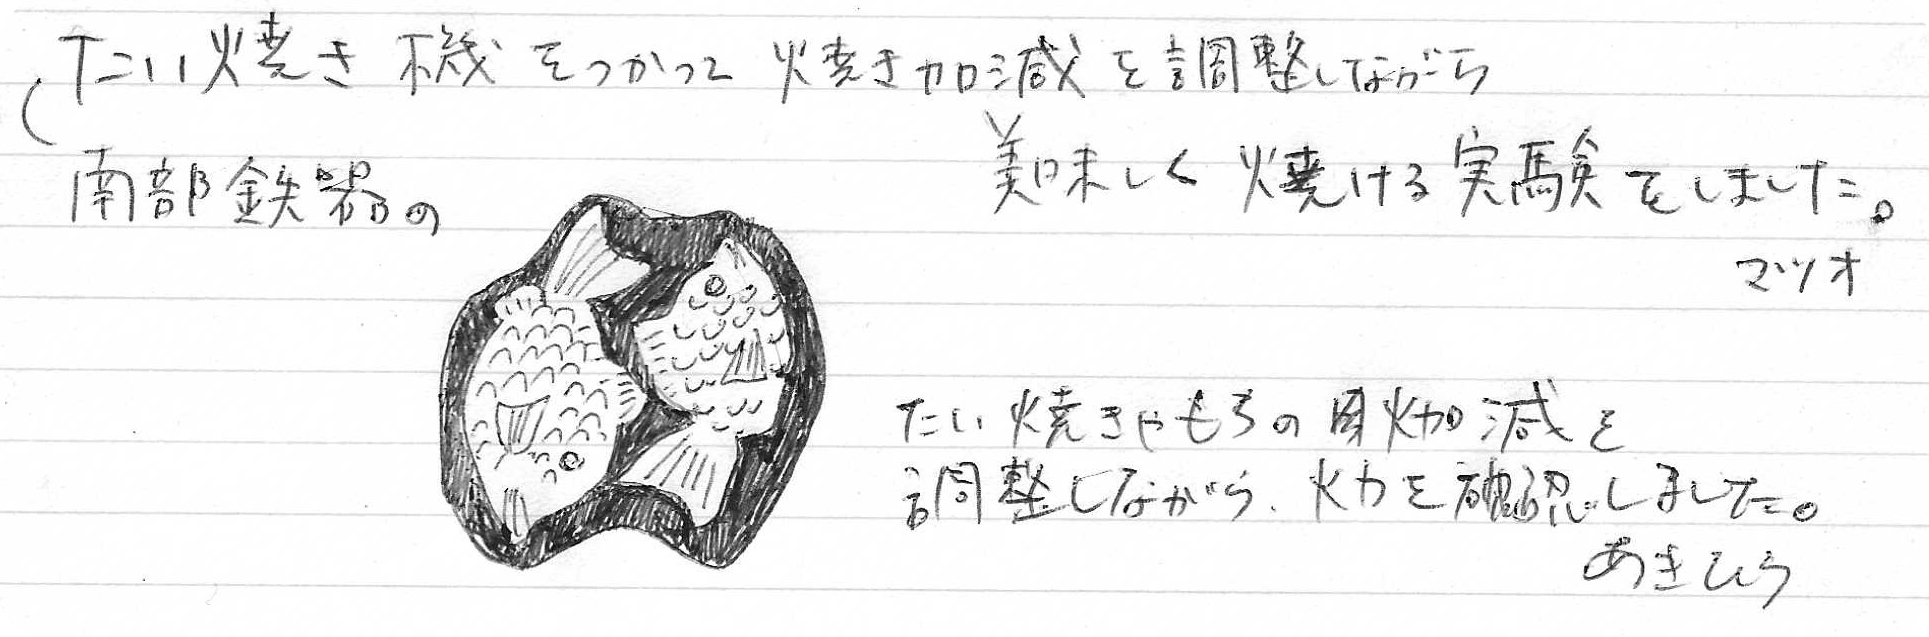 たい焼き機をつかって焼き加減を調整しながら
南部鉄器の
美味しく焼ける実験をしました。
マツオ
たい焼きやもちの火加減を
調整しながら、火力を確認しました。
あきひろ